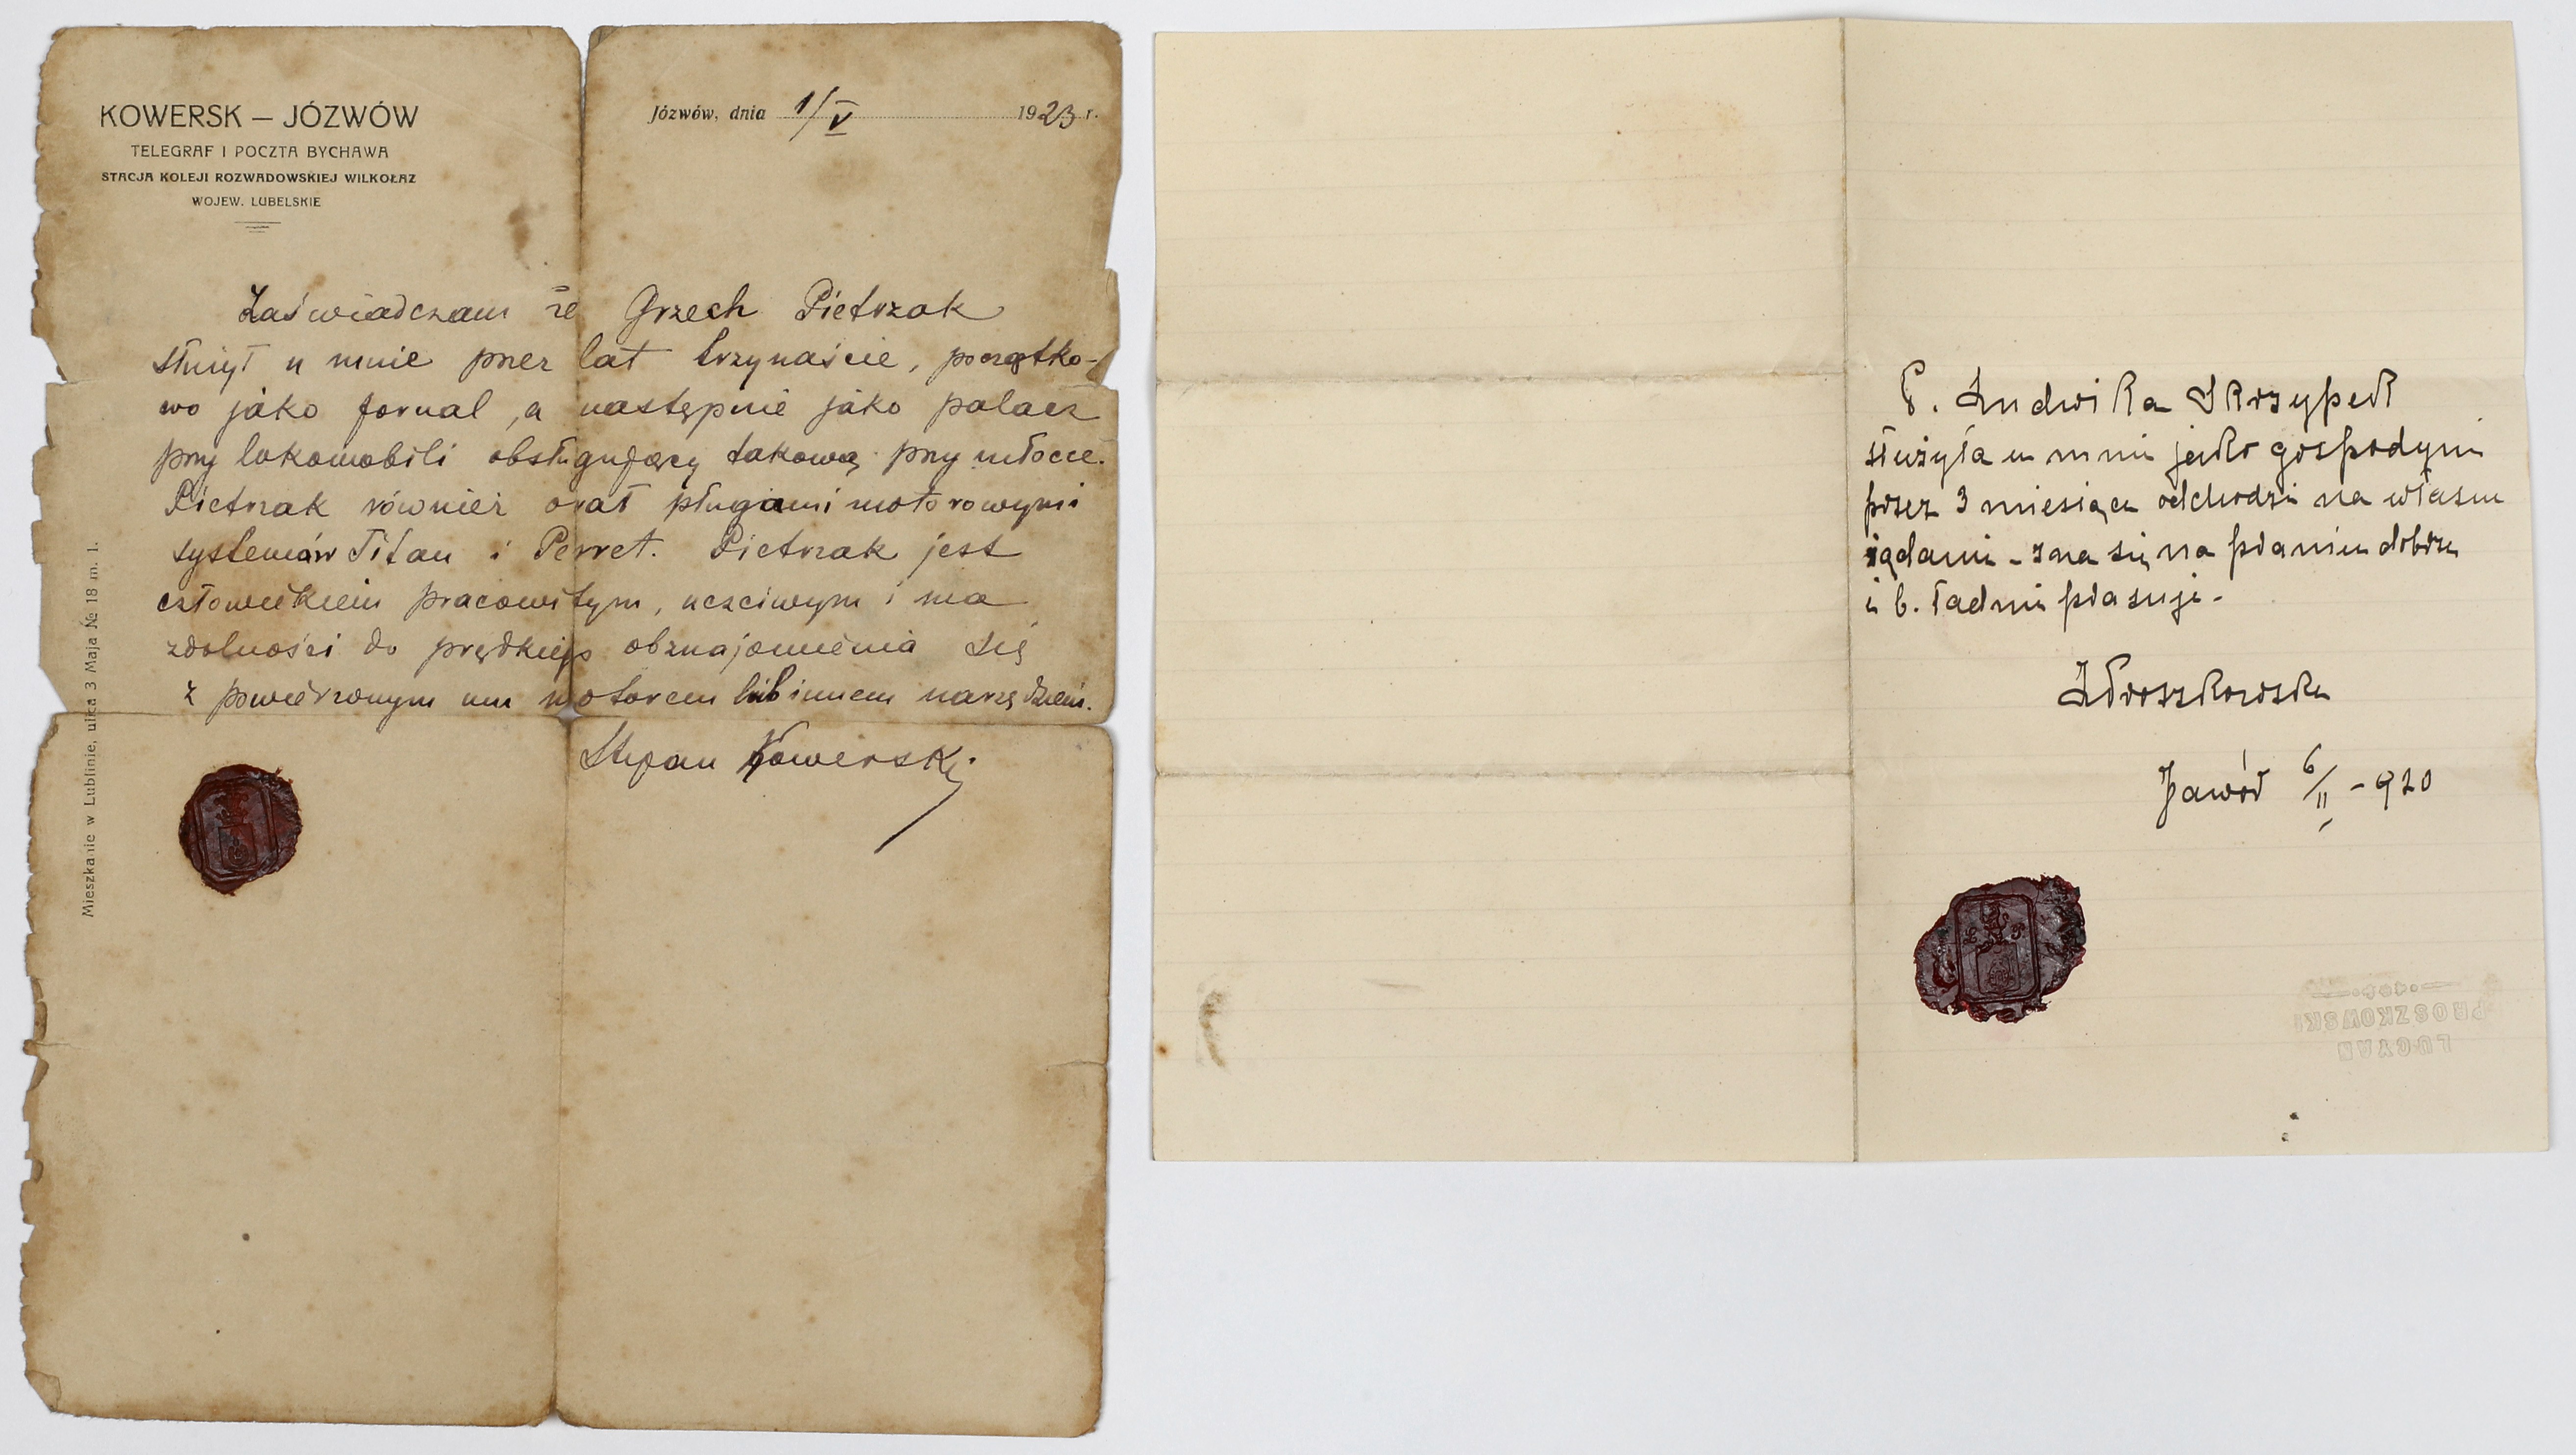 KOWERSK — JÓZWÓW
TELEGRAF I POCZTA BYCHAWA
STACJA KOLEJI ROZWADOWSKIEJ WILKOŁAZ
WOJEW. LUBELSKIE
Józwów, dnia 1/V 1923 r.
Zaświadczam że Grzech Pietrzak
służył u mnie przez lat trzynaście, początko-
wo jako fornal, a następnie jako palacz
przy lokomobili obsługujący takową przy młocce.
Pietrzak również orał pługami motorowymi
systemów Titan i Perret. Pietrzak jest
człowiekiem pracowitym, uczciwym i ma
zdolności do prędkiego obznajomienia się
z powierzonym mu motorem lub innem narzędziem.
Stefan Kowerski
Mieszkanie w Lublinie, ulica 3 Maja № 18 m. 1.
P. Ludwika Skrzypek
służyła u mnie jako gospodyni
przez 3 miesiące odchodzi na własne
żądanie - zna się na praniu dobrze
i b. ładnie prasuje -
Proszkowska
Jawór 6/II - 920
LUCYAN
PROSZKOWSKI